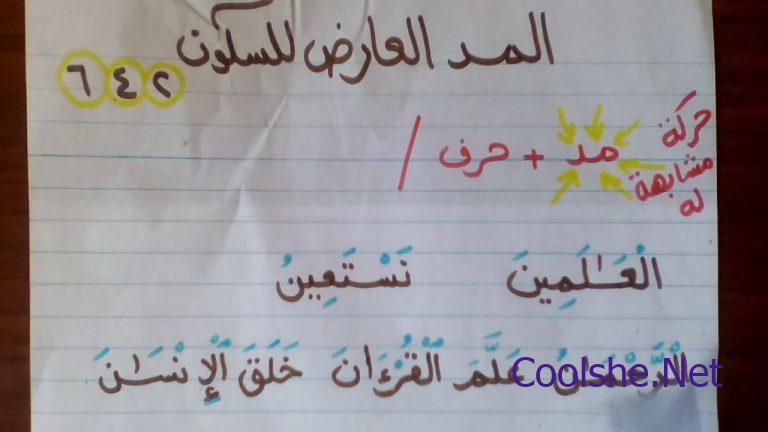 المد العارض للسكون
٢ ٤ ٦
حركة مشابهة له مد + حرف /
الْعَـٰلَمِينَ نَسْتَعِينُ
عَلَّمَ الْقُرْءَانَ خَلَقَ الْإِنْسَـٰنَ
Coolshe.Net